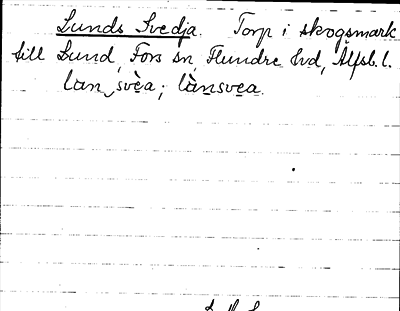 Lunds Svedja. Torp i skogsmark
till Lund, Fors sn, Flundre hd, Älfsb. l.
làn svèa; lànsvea.